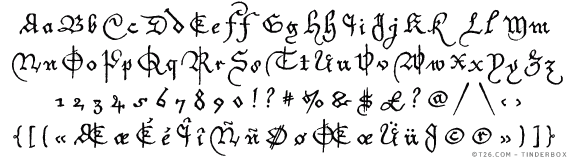 Aa Bb Cc Dd Ee Ff Gg Hh Ii Jj Kk Ll Mm
Nn Oo Pp Qq Rr Ss Tt Uu Vv Ww Xx Yy Zz
1 2 3 4 5 6 7 8 9 0 ! ? # % & $ £ ? @ / \ ‹ ›
{ [ ( « Æ æ É é Î î Ñ ñ Ø ø Œ œ Ü ü J © ® » ) ] }
©T26.COM – TINDERBOX